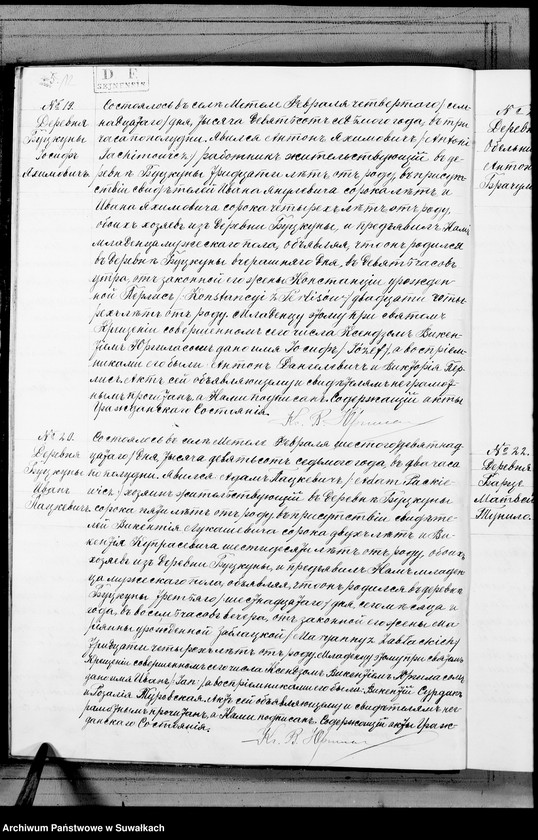 D E
№ 19.
Деревня
Буцкуны
Іосифъ
Яхимовичъ.
Состоялось въ селѣ Метеле Февраля четвертаго /сем-
надцатаго/ дня, тысяча девятьсотъ седьмого года, въ три
часа по полудни. Явился Антонъ Яхимовичъ /Antoni
Jachimowicz/ работникъ жительствующій въ де-
ревнѣ Буцкуны тридцати лѣтъ отъ роду, въ присут-
ствіи свидѣтелей Ивана Янулевича сорока лѣтъ и
Ивана Яхимовича сорока четырехъ лѣтъ отъ роду,
обоихъ хозяевъ изъ деревни Буцкуны, и предъявилъ Намъ
младенца мужескаго пола, объявляя, что онъ родился
въ деревнѣ Буцкуны вчерашняго дня, въ девять часовъ
утра, отъ законной его жены Констанціи урожден-
ной Перлисъ /Konstancyi z / двадцати четы-
рехъ лѣтъ отъ роду. Младенцу этому при святомъ
Крещеніи совершенномъ сего числа Ксендзомъ Викен-
тіемъ дано имя Іосифъ /Józef/, а воспріем-
никами его были Антонъ и Викторія Пер-
лисъ. Актъ сей объявляющему и свидѣтелямъ неграмот-
нымъ прочитанъ, а Нами подписанъ. Содержащій акты
Гражданскаго Состоянія.
Кс. В.
№ 20.
Деревня
Буцкуны
Иванъ
Пацкевичъ.
Состоялось въ селѣ Метеле Февраля шестого /девятнад-
цатаго/ дня тысяча девятьсотъ седьмого года, въ два часа
по полудни. Явился Адамъ Пацкевичъ /Adam Packie-
wicz/ хозяинъ жительствующій въ деревнѣ Буцкуны
сорока пяти лѣтъ отъ роду, въ присутствіи свидѣте-
лей Викентія Лукашевича сорока двухъ лѣтъ и Ви-
кентія Купрасевича шестидесяти лѣтъ отъ роду, обоихъ
хозяевъ изъ деревни Буцкуны, и предъявилъ Намъ младен-
ца мужескаго пола, объявляя, что онъ родился въ деревнѣ
Буцкуны третьяго /шестнадцатаго/ дня, сего мѣсяца и
года, въ восемь часовъ вечера, отъ законной его жены Ма-
ріанны урожденной Заблацкой /Maryanny z Zabłackich/
тридцати четырехъ лѣтъ отъ роду. Младенцу этому при святомъ
Крещеніи совершенномъ сего числа Ксендзомъ Викентіемъ
дано имя Иванъ /Jan/ а воспріемниками его были: Викентій
и Розалія Туровская. Актъ сей объявляющему и свидѣтелямъ нег-
рамотнымъ прочитанъ, а Нами подписанъ. Содержащій акты Граж-
данскаго Состоянія.
Кс. В.
Деревня
Антонъ
№ 22.
Деревня
Матвей
Archiwum Państwowe w Suwałkach